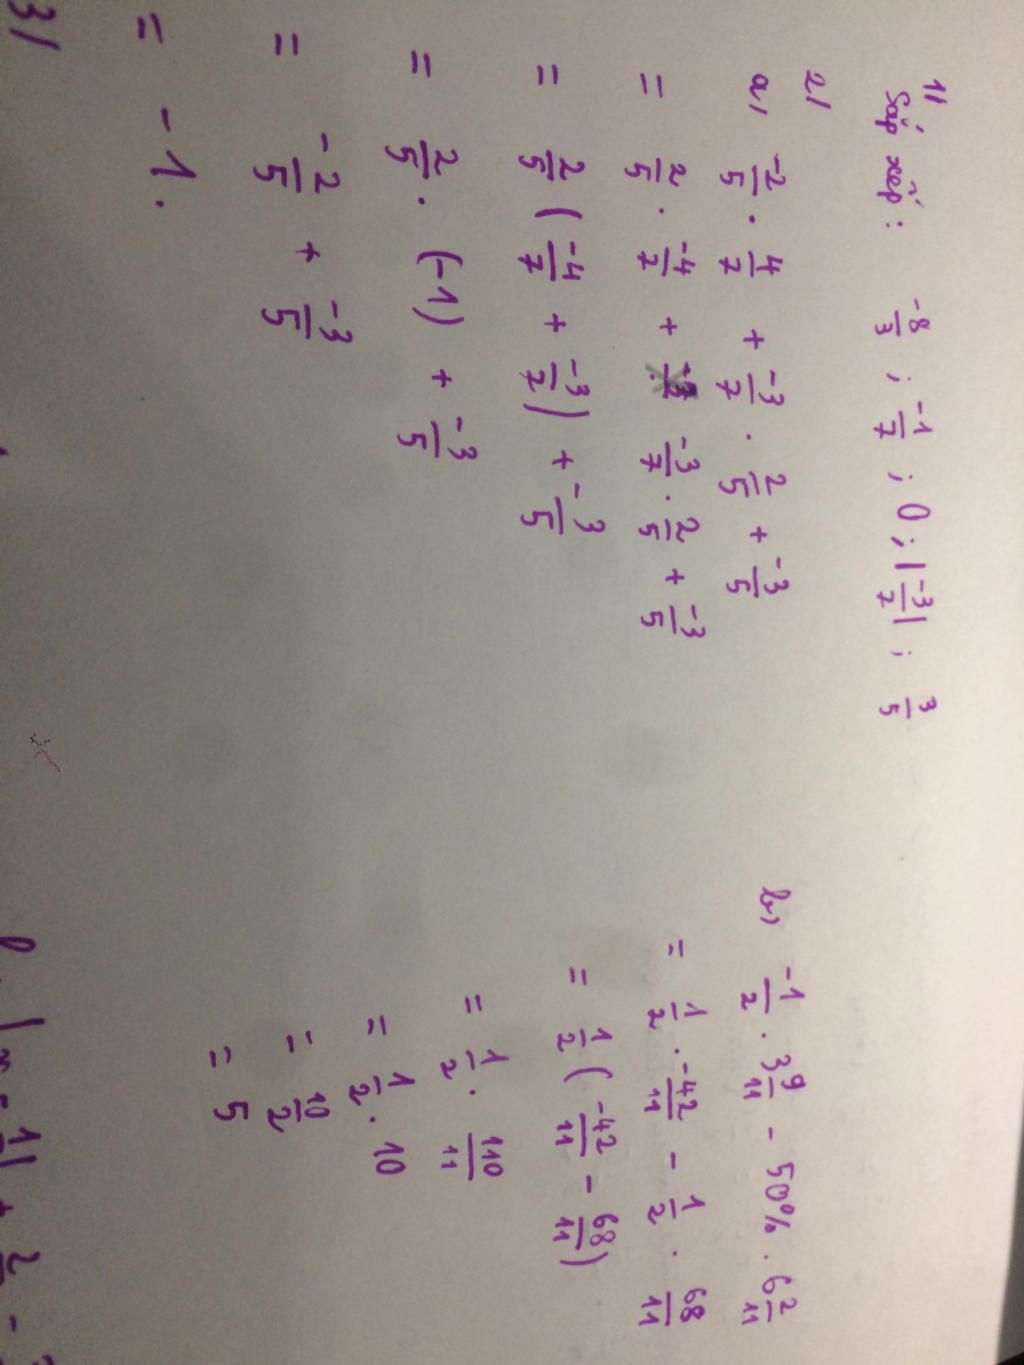 1) Sắp xếp: -8/3 ; -1/7 ; 0 ; |-3/7| ; 3/5
2)
a) -2/5 . 4/7 + -3/7 . 2/5 + -3/5
= 2/5 . -4/7 + -3/7 . 2/5 + -3/5
= 2/5 ( -4/7 + -3/7 ) + -3/5
= 2/5 . (-1) + -3/5
= -2/5 + -3/5
= -1.
3)
b) -1/2 . 3 9/11 - 50% . 6 2/11
= 1/2 . -42/11 - 1/2 . 68/11
= 1/2 ( -42/11 - 68/11 )
= 1/2 . 110/11
= 1/2 . 10
= 10/2
= 5